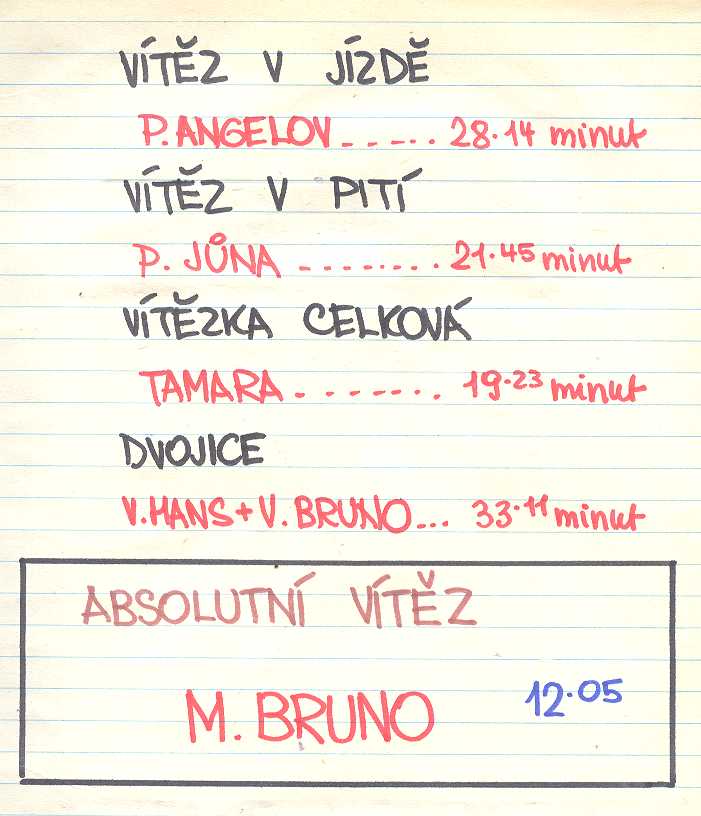 VÍTĚZ V JÍZDĚ
P. ANGELOV _ _ _ . . . 28.14 minut
VÍTĚZ V PITÍ
P. JŮNA - - - - . - . . . 21.45 minut
VÍTĚZKA CELKOVÁ
TAMARA - . - - - . . . 19.23 minut
DVOJICE
V. HANS + V. BRUNO ... 33.11 minut
ABSOLUTNÍ VÍTĚZ
M. BRUNO 12.05